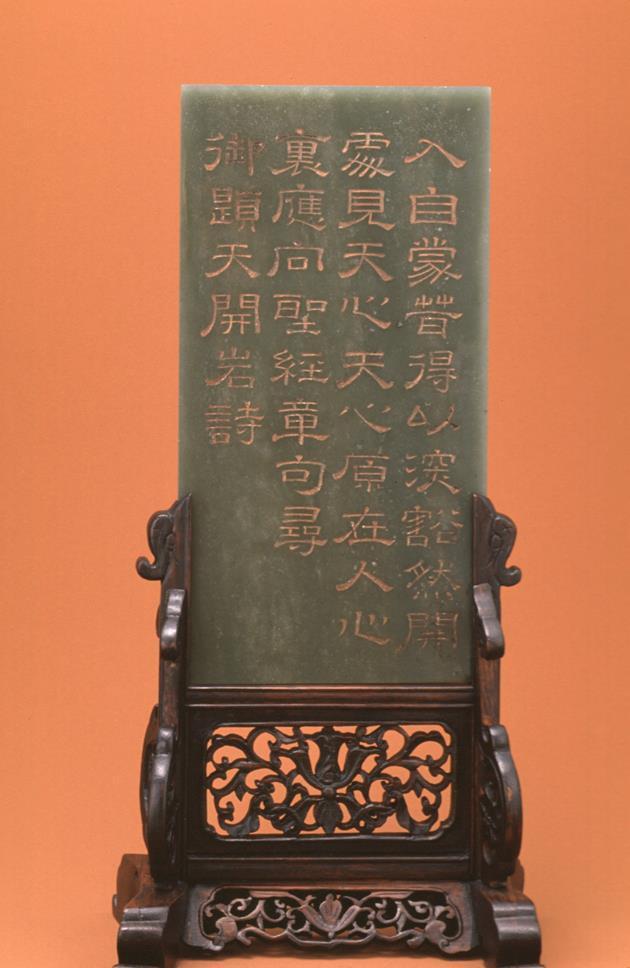 入自蒙茸得以深豁然開
處見天心天心原在人心
裏應向聖經章句尋
御題天開岩詩